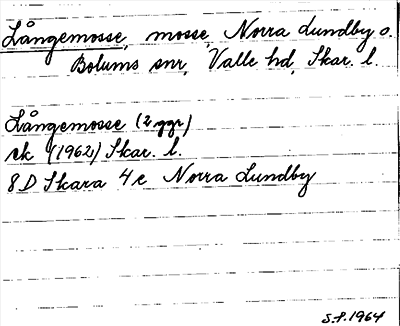 Långemosse, mosse, Norra Lundby o.
Bolums snr, Valle hd, Skar. l.
Långemosse (2 ggr)
ek (1962) Skar. l.
8D Skara 4c Norra Lundby
S.F. 1964